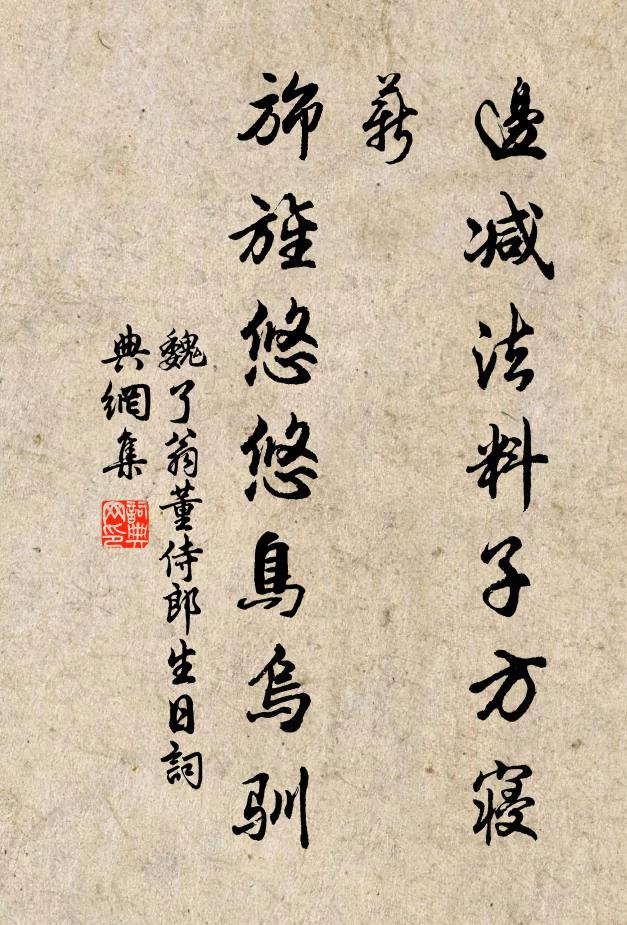 邊減法料子方寢
薪
旆旌悠悠鳥烏馴
魏了翁董侍郎生日詞
典網集
詞典
网印